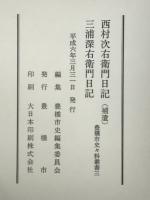 西村次右衛門日記（補遺）
三浦深右衛門日記
豊橋市史々料叢書三
平成六年三月三一日 発行
編集 豊橋市史編集委員会
発行 豊橋市
印刷 大日本印刷株式会社